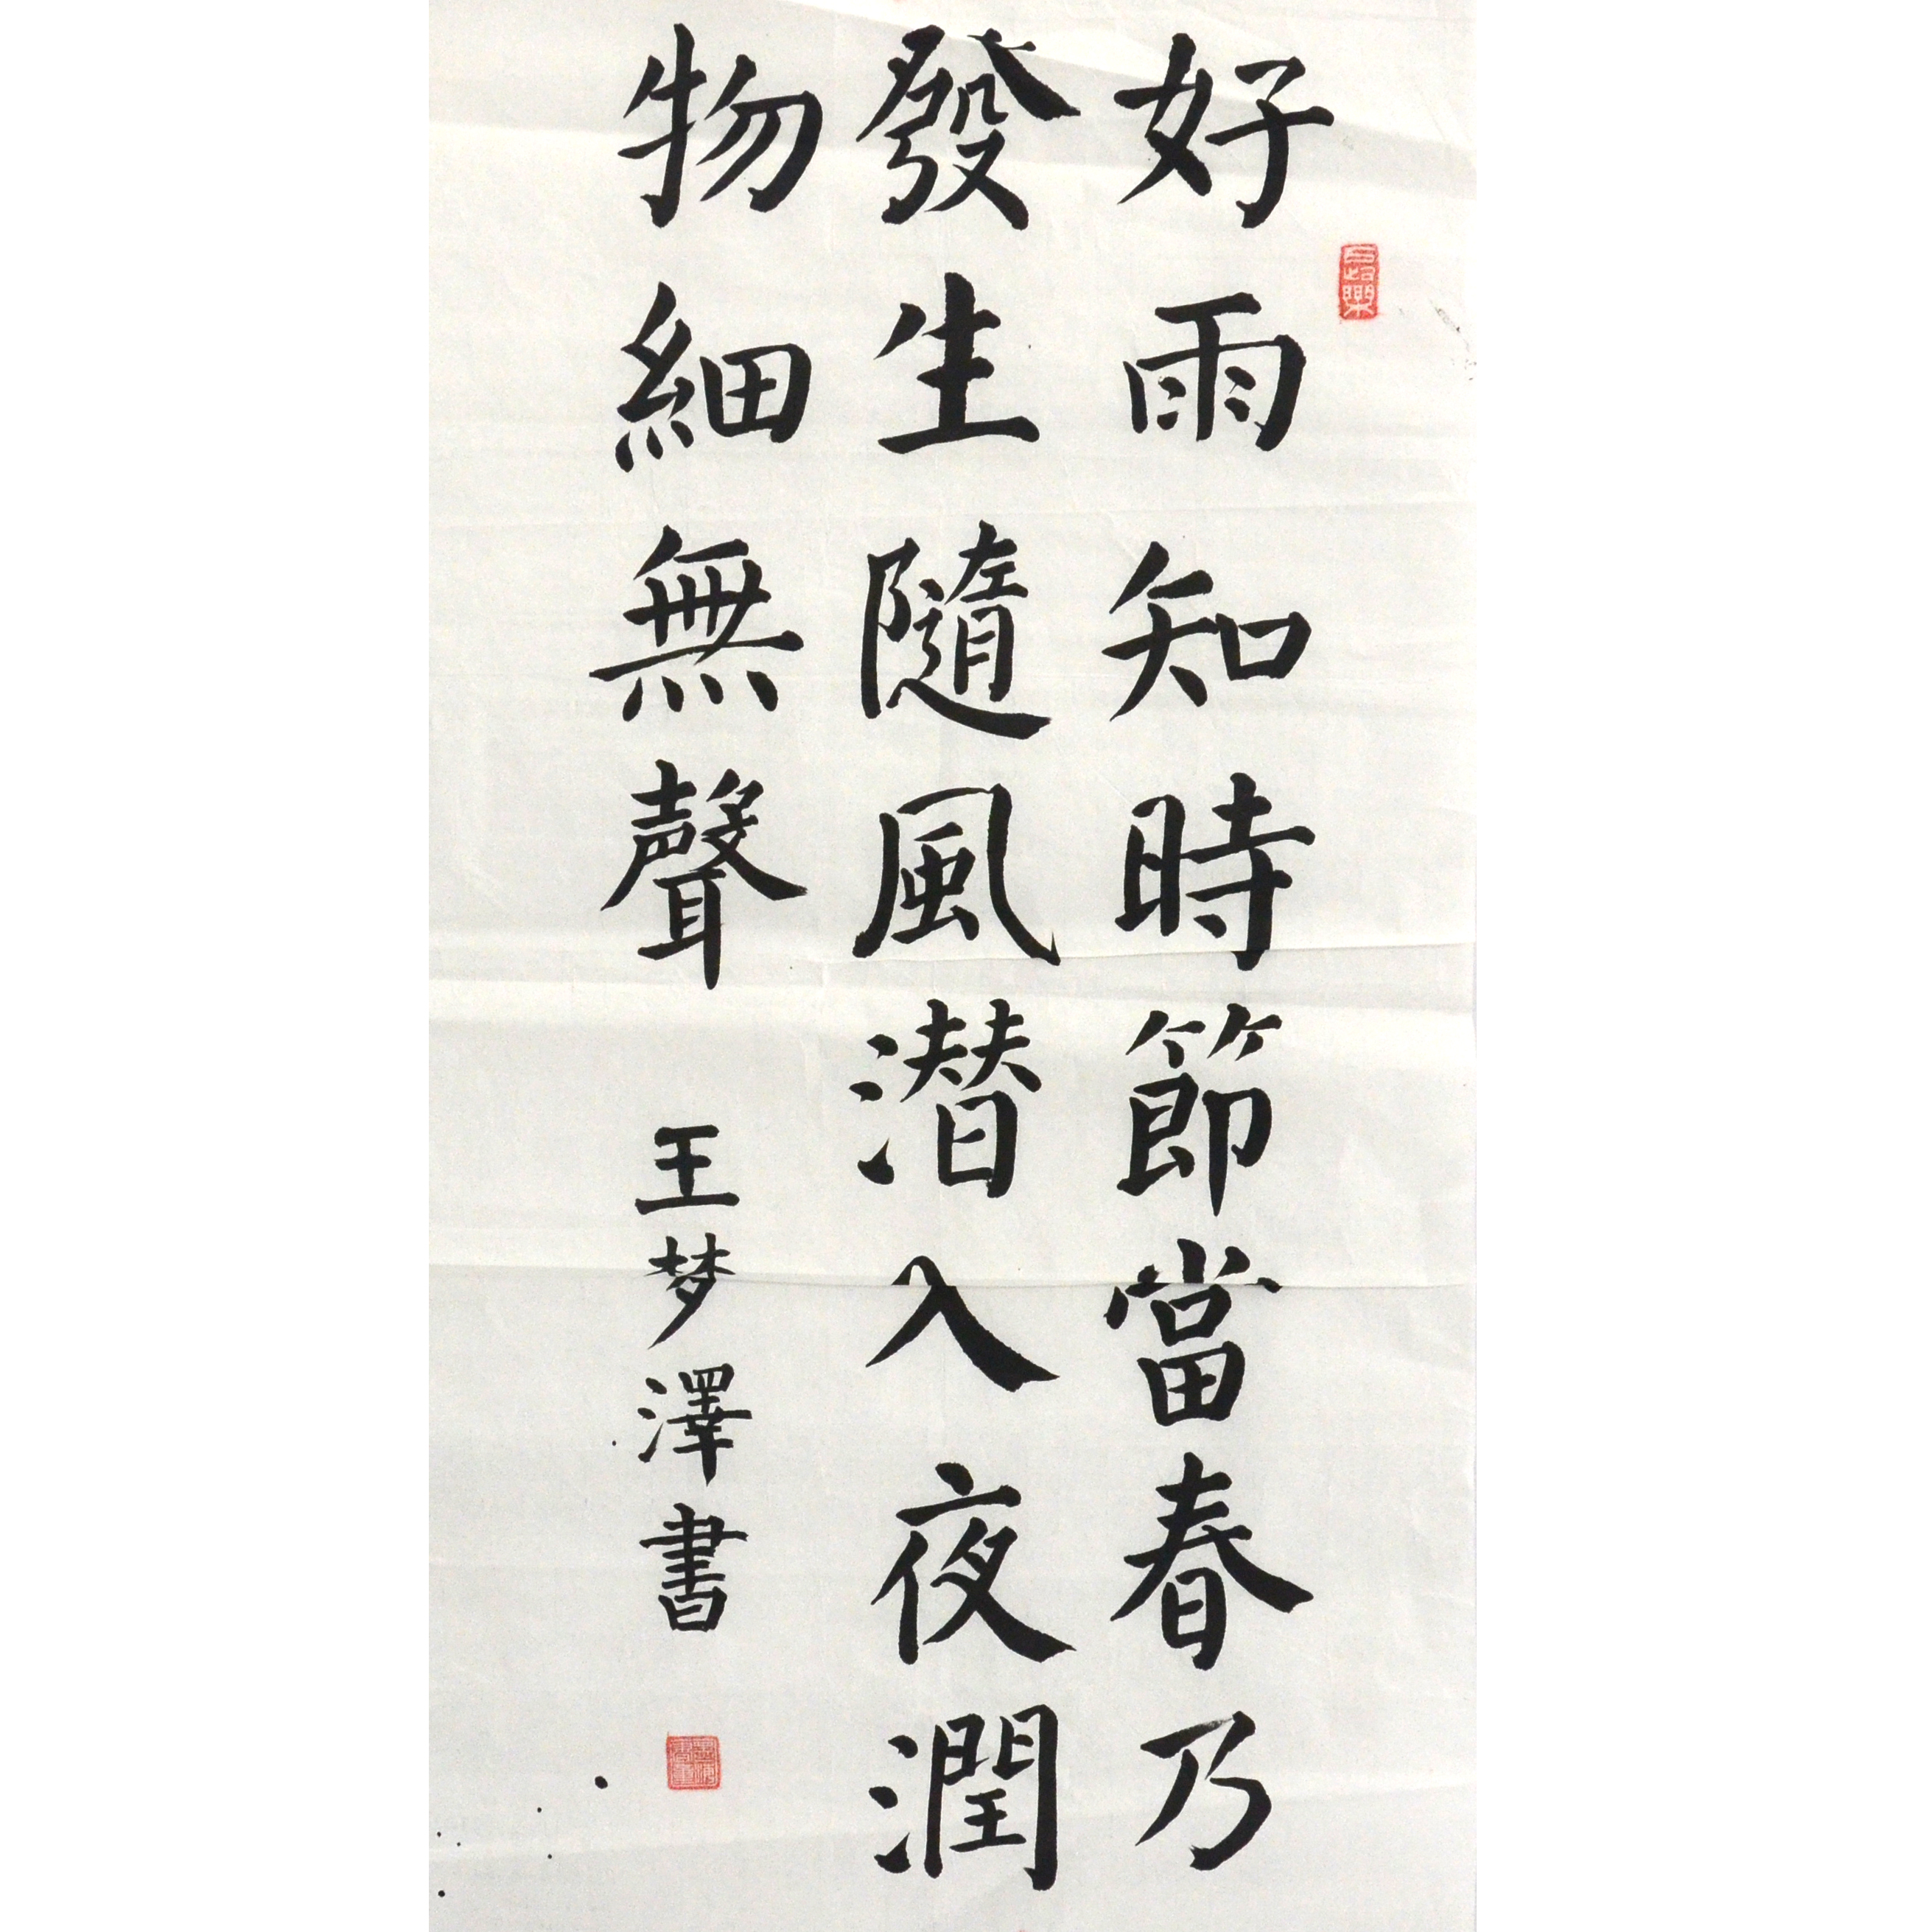 好雨知時節當春乃
發生隨風潛入夜潤
物細無聲
王梦澤書